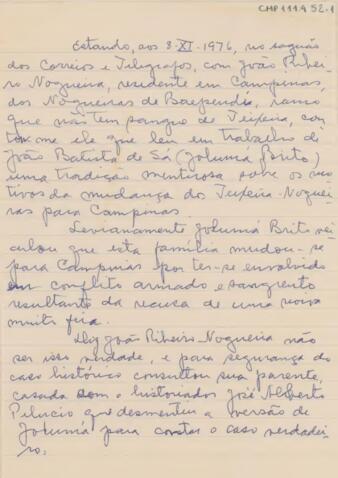 CMP 1.1.1.9 52-1
Estando, aos 8-XI-1976, no saguão
dos Correios e Telégrafos, com João Ribei-
ro Nogueira, residente em Campinas,
dos Nogueiras de Baependi, ramo
que não tem sangue de Teixeira, con
tou me ele que leu em trabalho de
João Batista de Sá (Jolumá Brito)
uma tradição mentirosa sobre os mo
tivos da mudança dos Teixeira-Noguei-
ras para Campinas.
Levianamente Jolumá Brito vei
culou que esta família mudou-se
para Campinas por ter-se envolvido
em conflito armado e sangrento
resultante da recusa de uma noiva
muito feia.
Diz João Ribeiro Nogueira não
ser isso verdade, e para segurança do
caso histórico consultou sua parente,
casada com o historiador José Alberto
Pelucio que desmentiu a versão de
Jolumá para contar o caso verdadei-
ro.